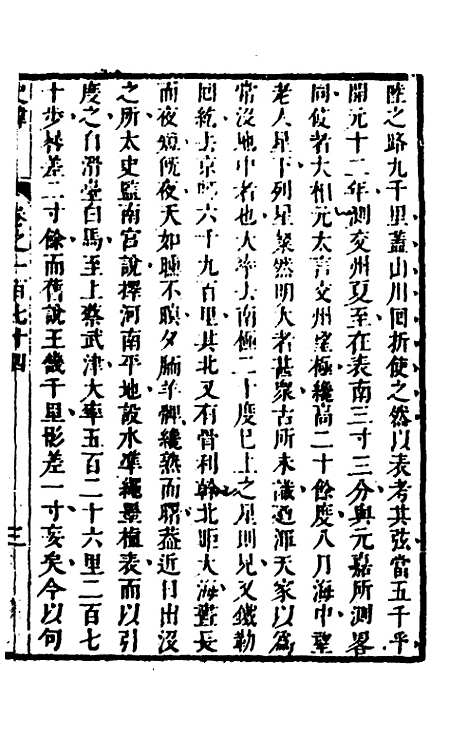 陸之路九千里蓋山川回折使之然以表考其弦當五千乎
開元十二年測交州夏至在表南三寸三分與元嘉所測畧
同使者大相元太言交州望極纔高二十餘度八月海中望
老人星下列星粲然明大者甚衆古所未識迺渾天家以爲
常沒地中者也大率去南極二十度已上之星則見又鐵勒
回紇去京師六千九百里其北又有骨利幹北距大海晝長
而夜短旣夜天如曛不瞑夕胹羊髀纔熟而曙蓋近日出沒
之所太史監南宮說擇河南平地設水準繩墨植表而以引
度之自滑臺白馬至上蔡武津大率五百二十六里二百七
十步晷差二寸餘而舊說王畿千里影差一寸妄矣今以句
史緯
卷之一百七十四
三